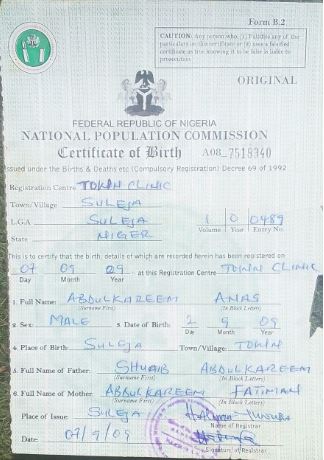 Form B.2
CAUTION: Any person who (1) Falsifies any of the
particulars on this certificate or (2) uses a falsified
certificate as true knowing it to be false is liable to
prosecution.
ORIGINAL
FEDERAL REPUBLIC OF NIGERIA
NATIONAL POPULATION COMMISSION
Certificate of Birth A08 7518340
Issued under the Births & Deaths etc (Compulsory Registration) Decree 69 of 1992
Registration Centre TOWN CLINIC
Town/Village SULEJA
L.G.A SULEJA 1 0 0489
State NIGER Volume Year Entry No.
This is to certify that the birth, details of which are recorded herein has been registered on
07 09 09 at this Registration Centre TOWN CLINIC
Day Month Year
1. Full Name: ABDULKAREEM ANAS
(Surname First) (In Block Letters)
2. Sex: MALE 3. Date of Birth: 2 9 09
Day Month Year
4. Place of Birth: SULEJA Town/Village: TOWN
5. Full Name of Father: SHUAIB ABDULKAREEM
(Surname First) (In Block Letters)
6. Full Name of Mother: ABDULKAREEM FATIMAH
(Surname First) (In Block Letters)
Place of Issue: SULEJA
Name of Registrar
Date: 07/9/09
Signature of Registrar